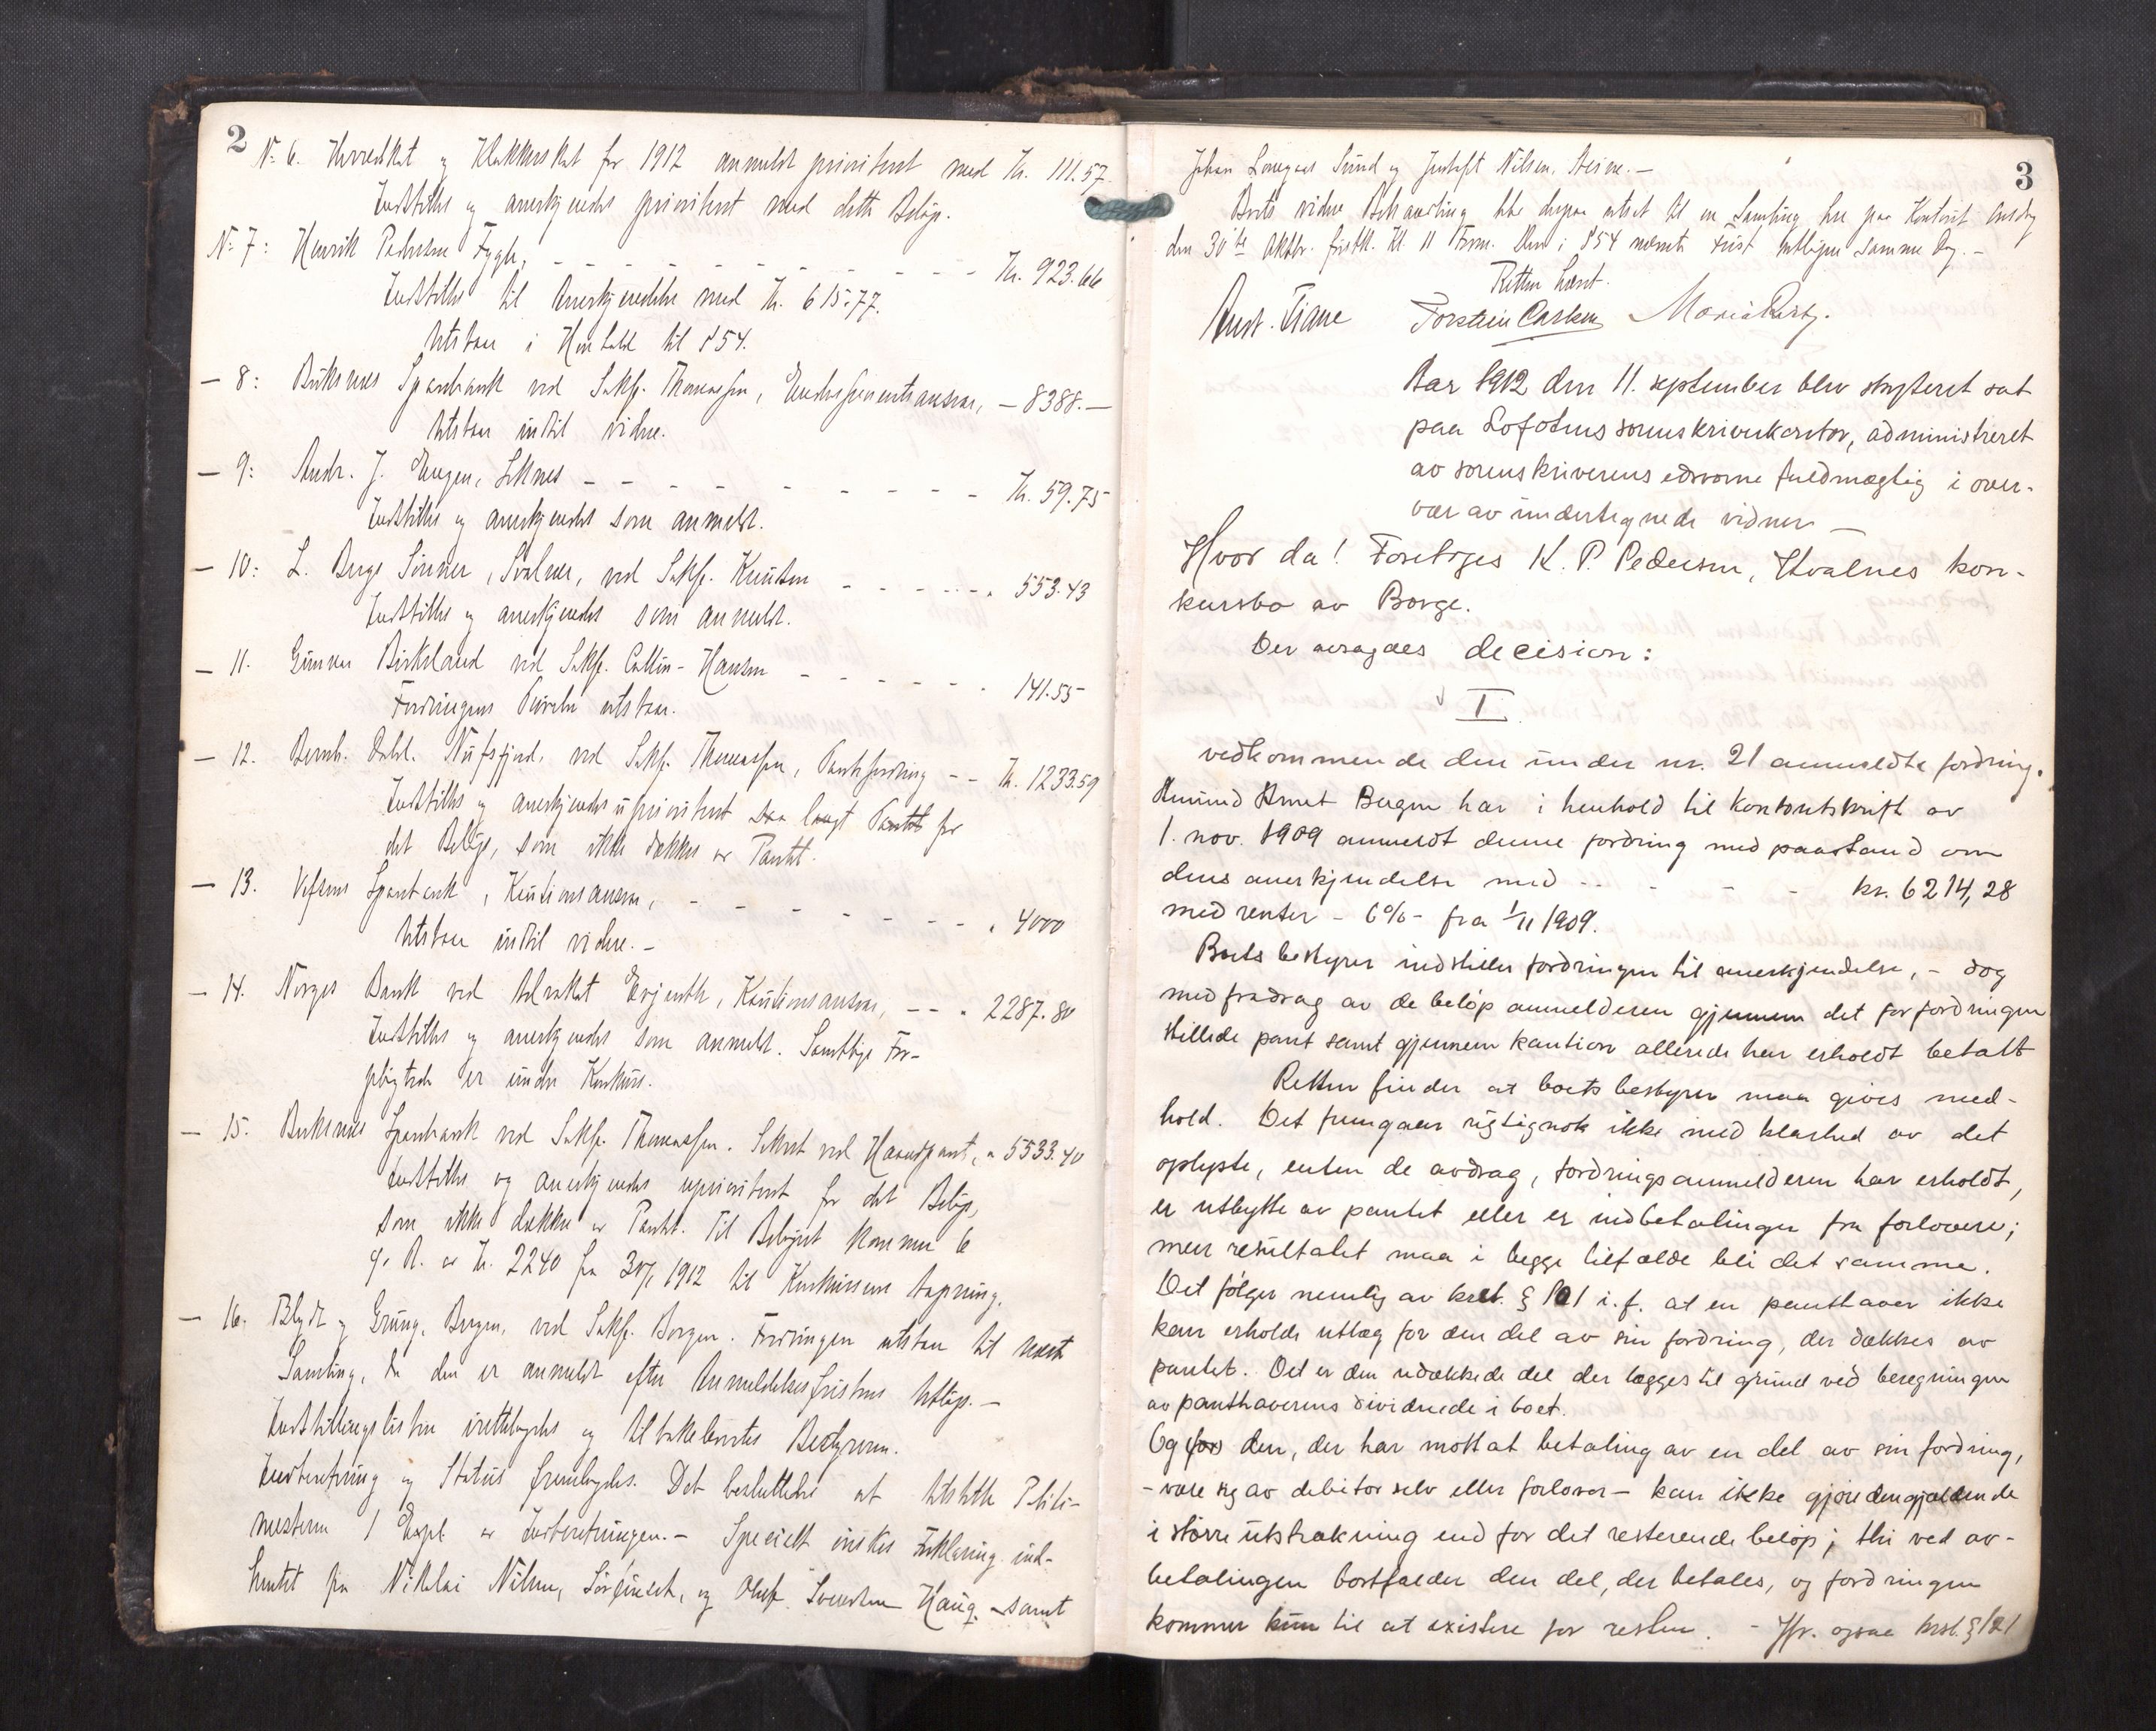 2
No 6. Herredskat og Klokkerskat for 1912 anmeldt prioritert med Kr. 111.57.
Indstilles og anerkjendes prioritert med dette Beløp.
No 7: Henrik Pedersen Fygle, - - - - - - - - - - Kr. 923.66
Indstilles til Anerkjendelse med Kr. 615.77.
Utstaar i Henhold til § 54.
— 8: Buksnes Sparebank ved Sakf. Thomassen, Endossementsansvar, — 8388.—
Utstaar indtil videre.
— 9: Andr. J. Engen, Leknes - - - - - - - - - Kr. 59.75
Indstilles og anerkjendes som anmeldt.
— 10: L. Bergs Sønner, Svolvær, ved Sakf. Knutsen - - - - - - 553.43
Indstilles og anerkjendes som anmeldt.
— 11. Gunnar Birkeland ved Sakf. Collin-Hansen - - - - - - 141.55
Fordringens Prøvelse utstaar.
— 12. Bernh. Dahl. Nufsfjord, ved Sakf. Thomassen, Pantefordring - - Kr. 1233.59
Indstilles og anerkjendes uprioritert saa langt Pantet for
det Beløp, som ikke dækkes av Pantet.
— 13. Vefsens Sparebank, Kautionsansvar, - - - - - - - - " 4000
Utstaar indtil videre. —
— 14. Norges Bank ved Advokat Erjenth, Kautionsansvar, - - " 2287.80
Indstilles og anerkjendes som anmeldt. Samtlige For-
pligtede er under Konkurs.
— 15. Buksnes Sparebank ved Sakf. Thomassen. Sikret ved Haandpant, " 5533.40
Indstilles og anerkjendes uprioritert for det Beløp,
som ikke dækkes av Pantet. Til Beløpet kommer 6
% R. av Kr. 2240 fra 30/1 1912 til Konkursens Aapning.
— 16. Blydt og Grung, Bergen, ved Sakf. Borgen. Fordringen utstaar til næste
Samling, da den er anmeldt efter Anmeldelsesfristens Utløp. —
Indstillingslisten irettelagdes og tilbakeleveredes Bestyreren.
Indberetning og Status fremlagdes. Det besluttedes at tilstille Politi-
mesteren 1 Expl. av Indberetningen. — Specielt ønskes Forklaring ind-
hentet fra Nikolai Nilsen, og Oluf Sverdrup Haug. — samt
3
Johan Sund og Gustaf Nilsen, Steine. —
Boets videre Behandling blev derpaa utsat til en Samling her paa Kontoret Onsdag
den 30te Oktbr. førstk. Kl. 11 Form. Den i § 54 nævnte Frist utløper samme Dag. —
Retten hævet.
Anst. Tiane Torstein Carlsen Maria Rist.
Aar 1912 den 11. september blev skifteret sat
paa Lofotens sorenskriverkontor, administreret
av sorenskriverens edsvorne fuldmægtig i over-
vær av undertegnede vidner —
Hvor da! Foretoges K. P. Pedersen, Hvalnes kon-
kursbo av Borge.
Der avsagdes decision:
I.
vedkommende den under nr. 21 anmeldte fordring.
Amund Amot Bergen har i henhold til kontoutskrift av
1. nov. 1909 anmeldt denne fordring med paastand om
dens anerkjendelse med - - - - - kr. 6214,28
med renter - 6% - fra 1/11 1909.
Boets bestyrer indstiller fordringen til anerkjendelse, - dog
med fradrag av de beløp anmelderen gjennem det for fordringen
stillede pant samt gjennem kaution allerede har erholdt betalt
Retten finder at boets bestyrer maa gives med-
hold. Det fremgaar rigtignok ikke med klarhed av det
oplyste, enten de avdrag, fordringsanmelderen har erholdt,
er utbytte av pantet eller er indbetalinger fra forlovere;
men resultatet maa i begge tilfælde bli det samme.
Det følger nemlig av ksl. § 121 i.f. at en panthaver ikke
kan erholde utlæg for den del av sin fordring, der dækkes av
pantet. Det er den udækkede del der lægges til grund ved beregningen
av panthaverens dividende i boet.
Og den, der har mottat betaling av en del av sin fordring,
- være sig av debitor selv eller forlover - kan ikke gjøre den gjældende
i større utstrækning end for det resterende beløp; thi ved av-
betalingen bortfalder den del, der betales, og fordringen
kommer kun til at existere for resten. - Jfr. ogsaa krsl. § 121